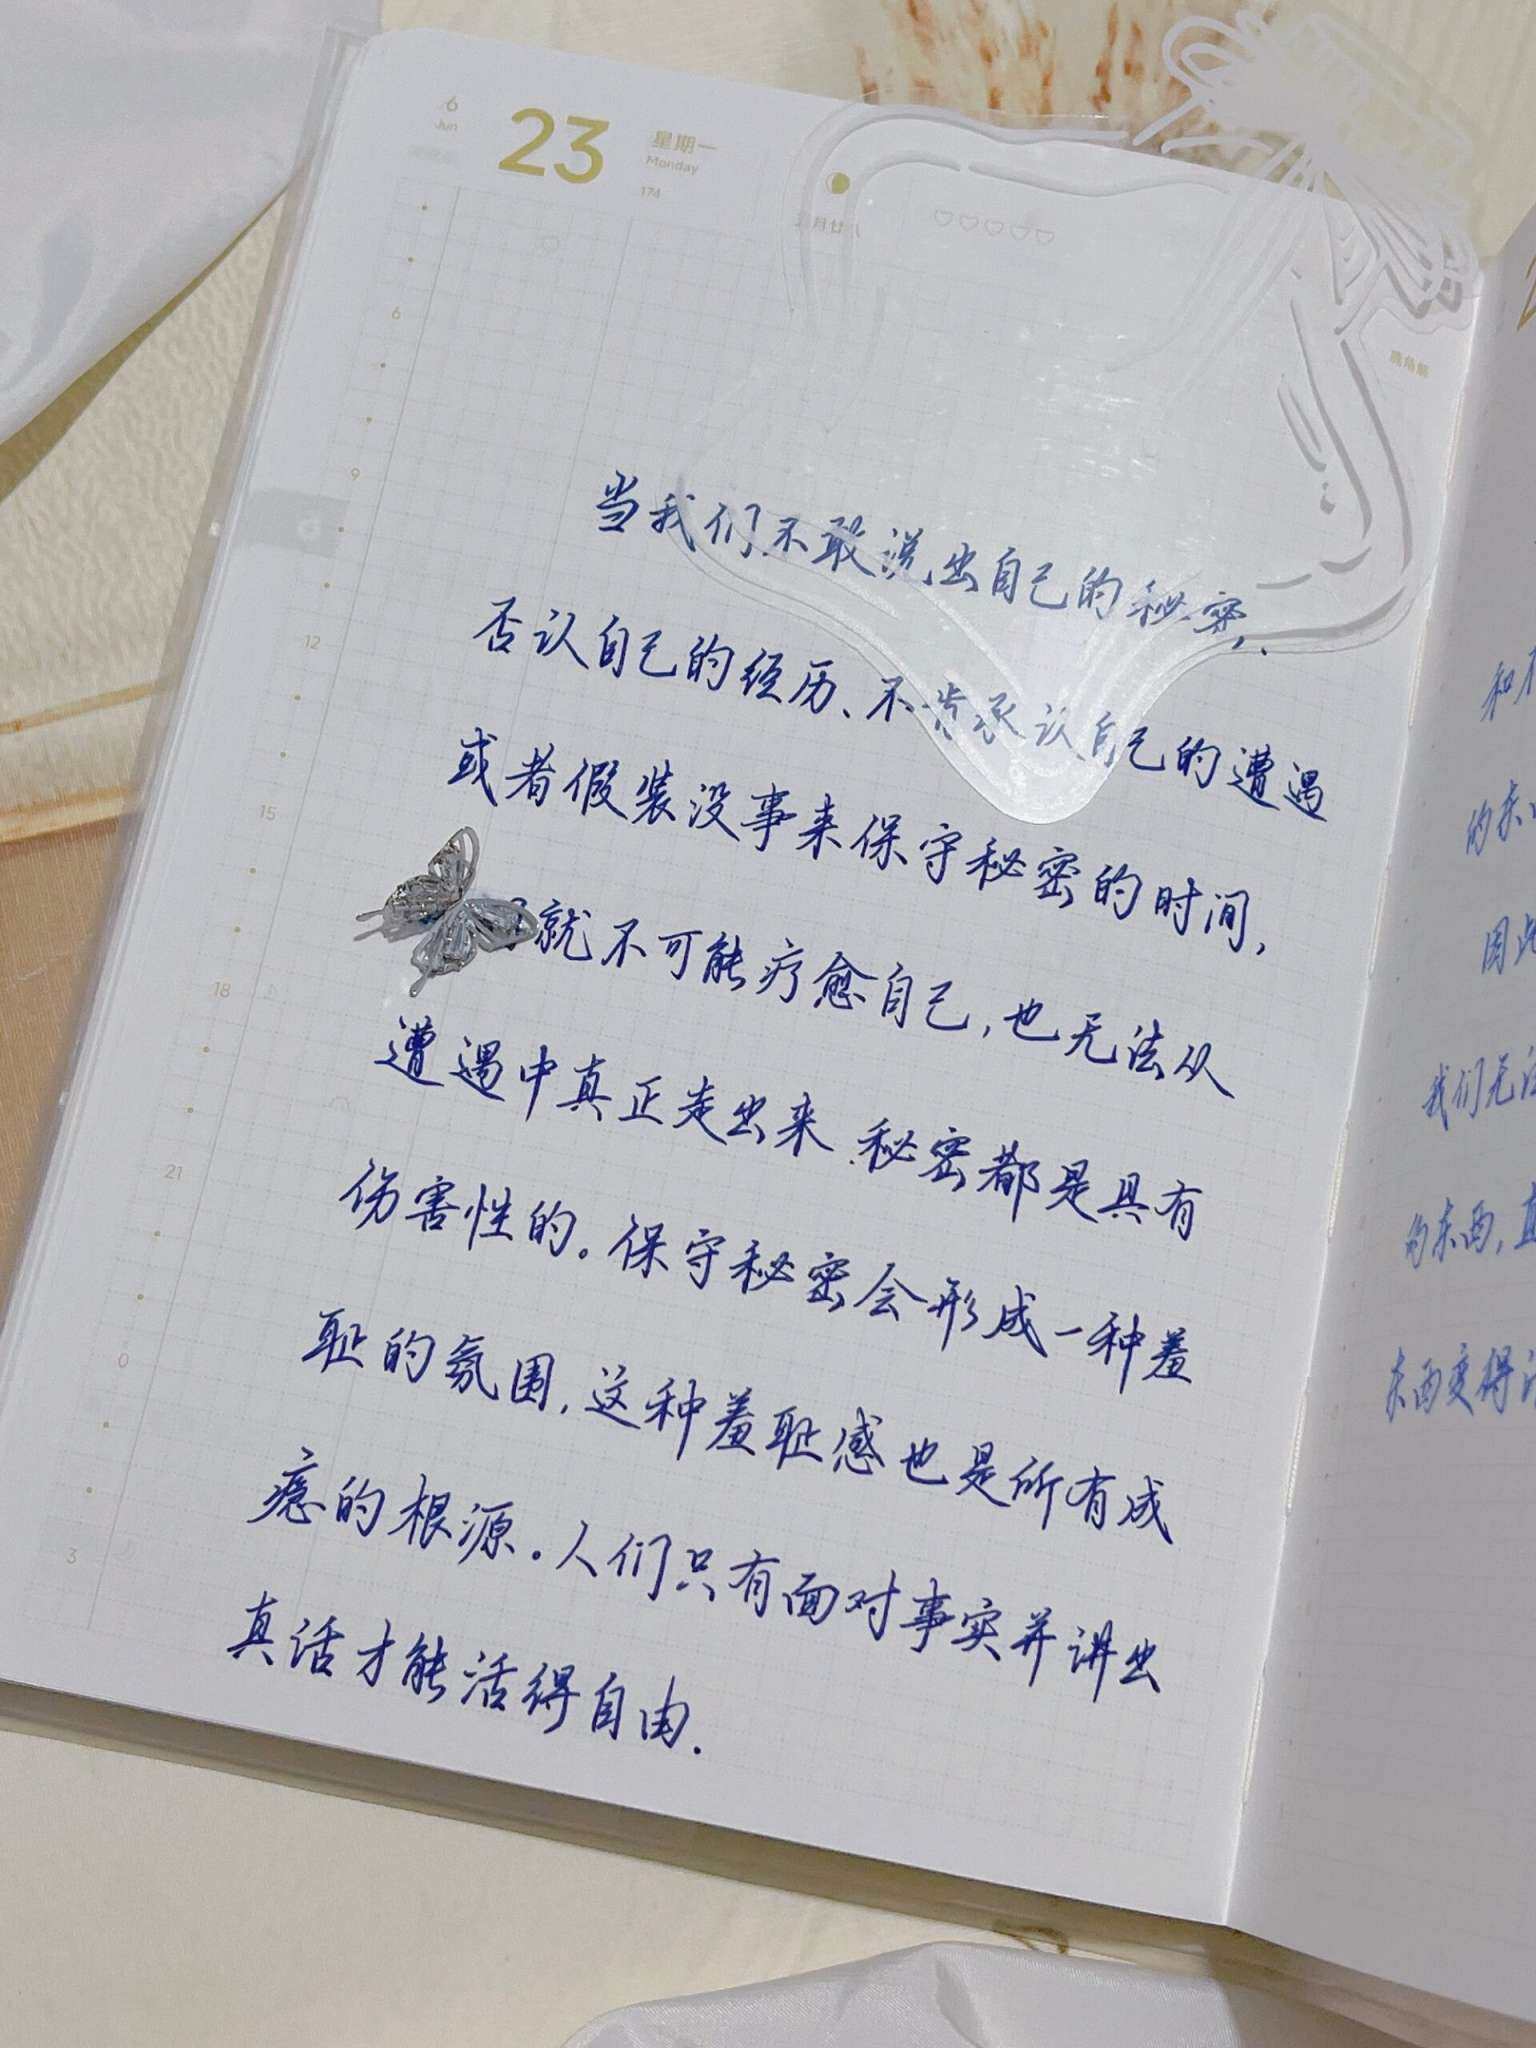 6
Jun
23
星期一
Monday
174
月廿
6
9
12
15
18
21
0
3
当我们不敢说出自己的秘密、
否认自己的经历、不肯承认自己的遭遇
或者假装没事来保守秘密的时间,
就不可能疗愈自己,也无法从
遭遇中真正走出来.秘密都是具有
伤害性的。保守秘密会形成一种羞
耻的氛围,这种羞耻感也是所有成
瘾的根源。人们只有面对事实并讲出
真话才能活得自由.
鹿角解
和
的东
因此
我们无法
的东西,直
东西变得